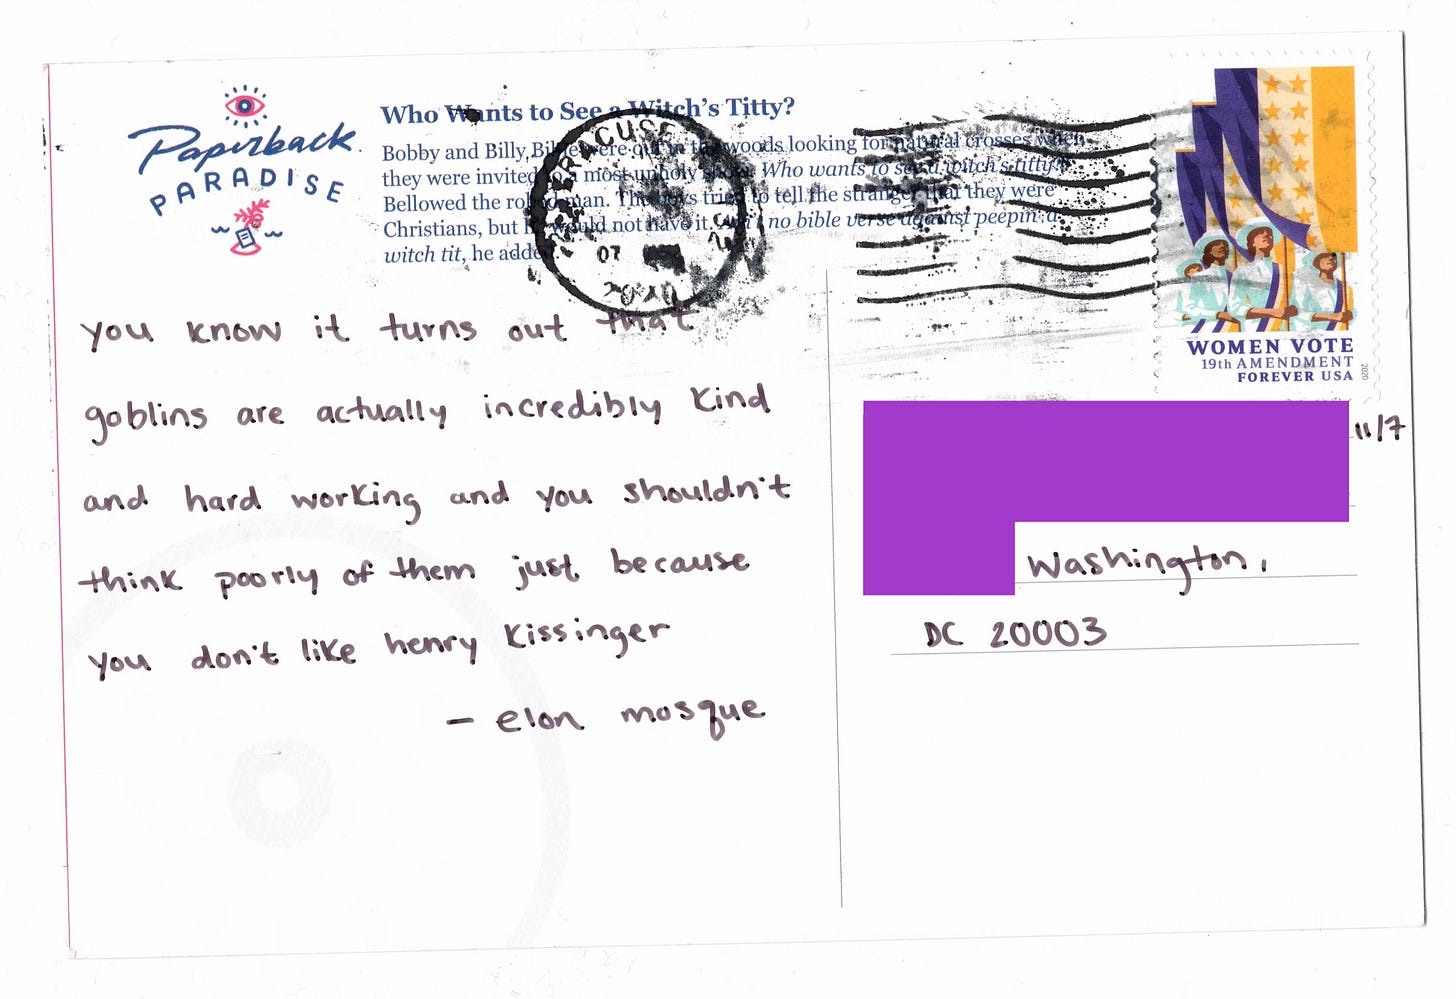 Paperback
PARADISE
Who Wants to See a Witch's Titty?
Bobby and Billy were out in the woods looking for natural crosses when
they were invited to a most unholy Who wants to see a witch's titty?
Bellowed the robed man. The boys tried to tell the stranger that they were
Christians, but he would not have it. no bible verse against peepin' a
witch tit, he added.
SYRACUSE
07
2020
WOMEN VOTE
19th AMENDMENT
FOREVER USA
2020
you know it turns out that
goblins are actually incredibly kind
and hard working and you shouldn't
think poorly of them just because
you don't like henry kissinger
— elon mosque
11/7
Washington,
DC 20003